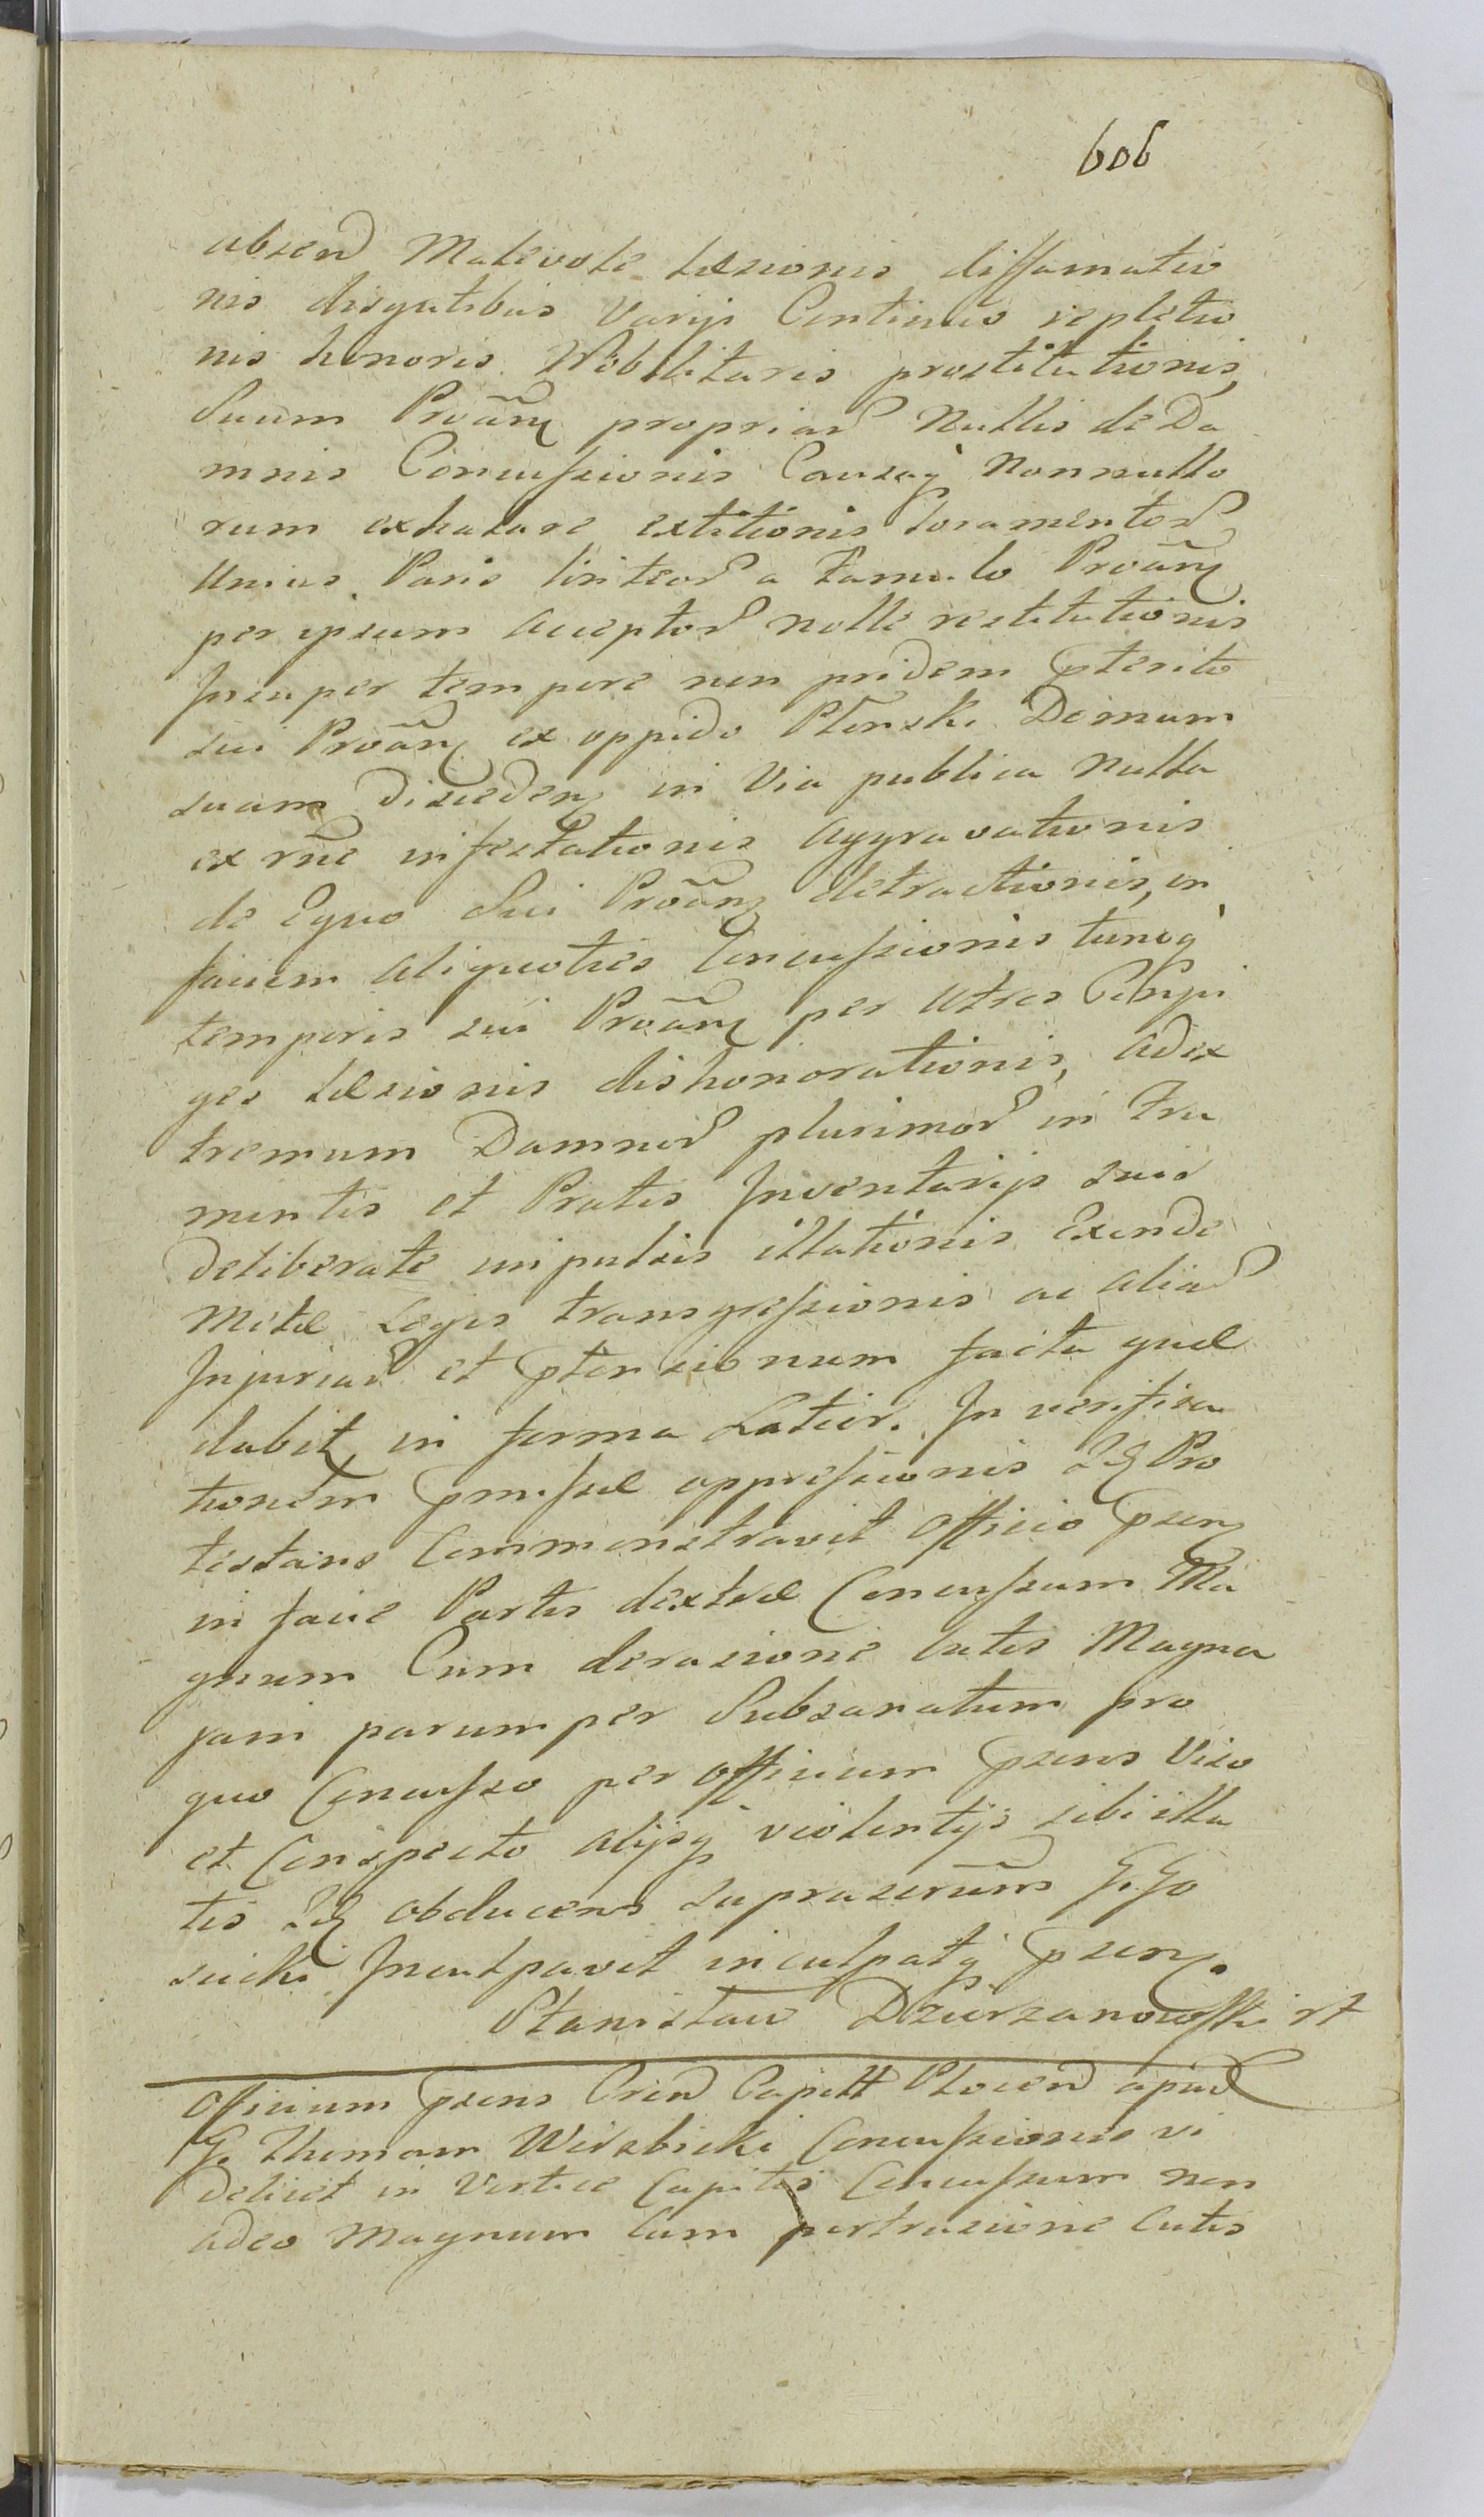 606
absend Malevole Læsionis diffamatio
nis disgutibus Varijs Continuo repletio
nis honoris Nobilitaris prostitutionis,
Suum Proãnt propriar Nullis de Da
mnis Concussionis Causaq Nonnullo
rum exhalare extitionis Foramentor
Unius Paris linteor a Famulo Proãnt
per ipsum acceptor nolle restitutionis
Insuper tempore non pridem pterito
sui Proãnt ex oppido Plonsk Domum
suam Discedent in Via publica Nulla
ex rñe infestationis aggravationis
de Equo Sui Proãnt detractionis, in
faciem aliquoties Concussionis tuncq
temporis sui Proãnt per Utres
ges Læsionis dishonorationis, ad ex
tremum Damnor plurimor in Fru
mentis et Pratis Inventarijs suis
Deliberate impulsis illationis Exinde
Metæ Legis transgressionis ac aliar
Injuriar et ptensionum facta quæ
dabit in forma Latior. In verifica
tionem pmissæ oppressionis Idq Pro
testans Commonstravit Officio psent
in facie Partis dextræ Concussum Ma
gnum Cum derasione cutis Magna
jam parumper Subsanatum pro
quo Concusso per Officium psens Viso
et Conspecto alijsq violentijs sibi illa
tis Idq obducens suprascrum G. Go
sicki Inculpavit inculpatq psent.
Stanisław Dziersanowski rt
Officium psens Crend Capitt Plocen apud
G. Thomam Wierzbicki Concussionis vi
Delicet in Vertice Capitis Concussum non
adeo Magnum Cum pertrasione Cutis